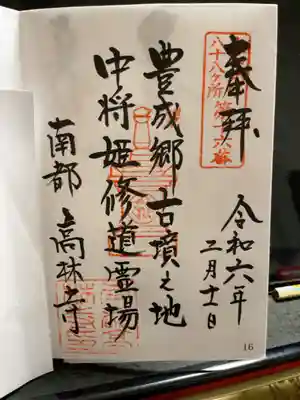 奉拝
八十八ヶ所第十六番
令和六年
二月十一日
豊成郷古墳之地
中将姫修道霊場
南都高林寺
16